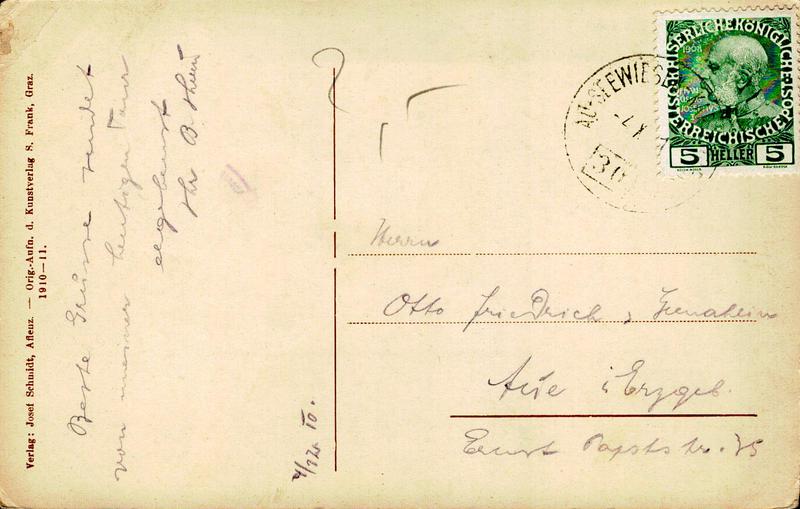 Verlag: Josef Schmidt, Aflenz. — Orig.-Aufn. d. Kunstverlag S. Frank, Graz.
1910—11.
Beste Grüsse sendet
von meiner heutigen Tour
ergebenst
Ihr B.
KAISERLICHE KÖNIGLICHE
ÖSTERREICHISCHE POST
1908
5 HELLER 5
AU-SEEWIESEN
Herrn
Otto Friedrich,
Aue i Erzgeb.
Ernst Papststr. 75